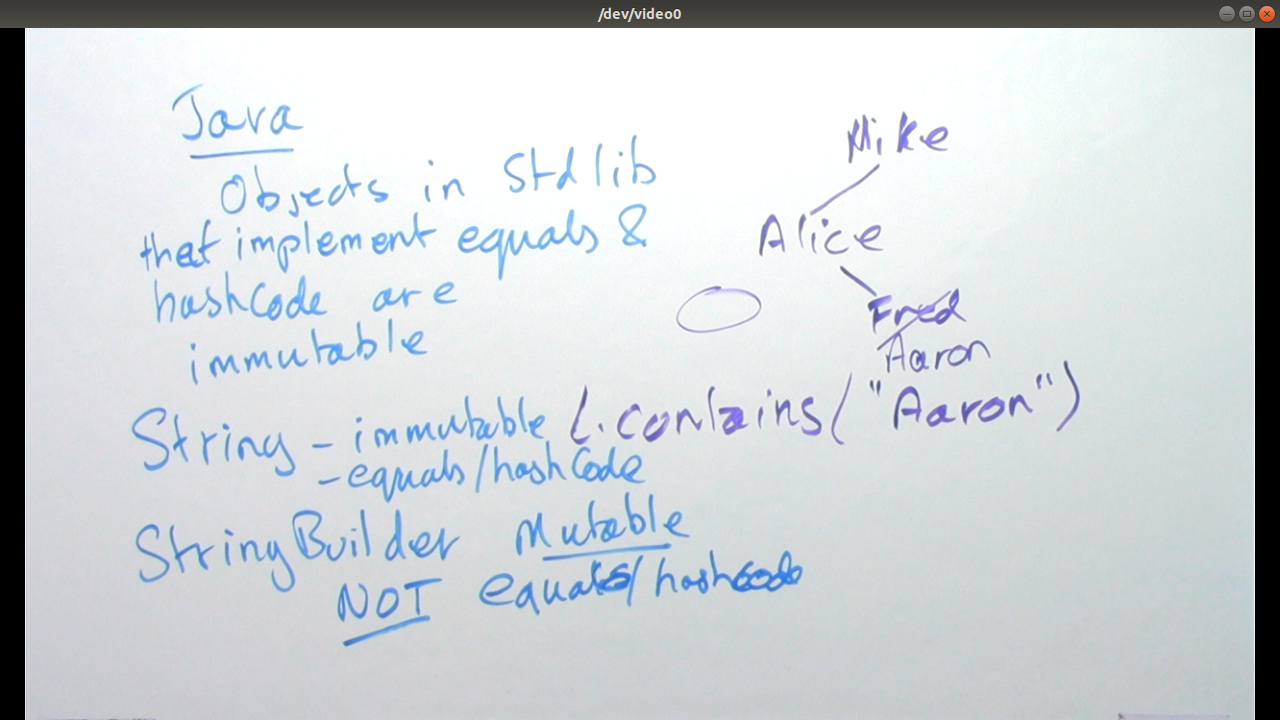 /dev/video0
Java
Objects in Stdlib
that implement equals &
hashCode are
immutable
String - immutable
- equals/hashCode
StringBuilder Mutable
NOT equals/hashcode
Mike
Alice
Fred
Aaron
L.contains("Aaron")